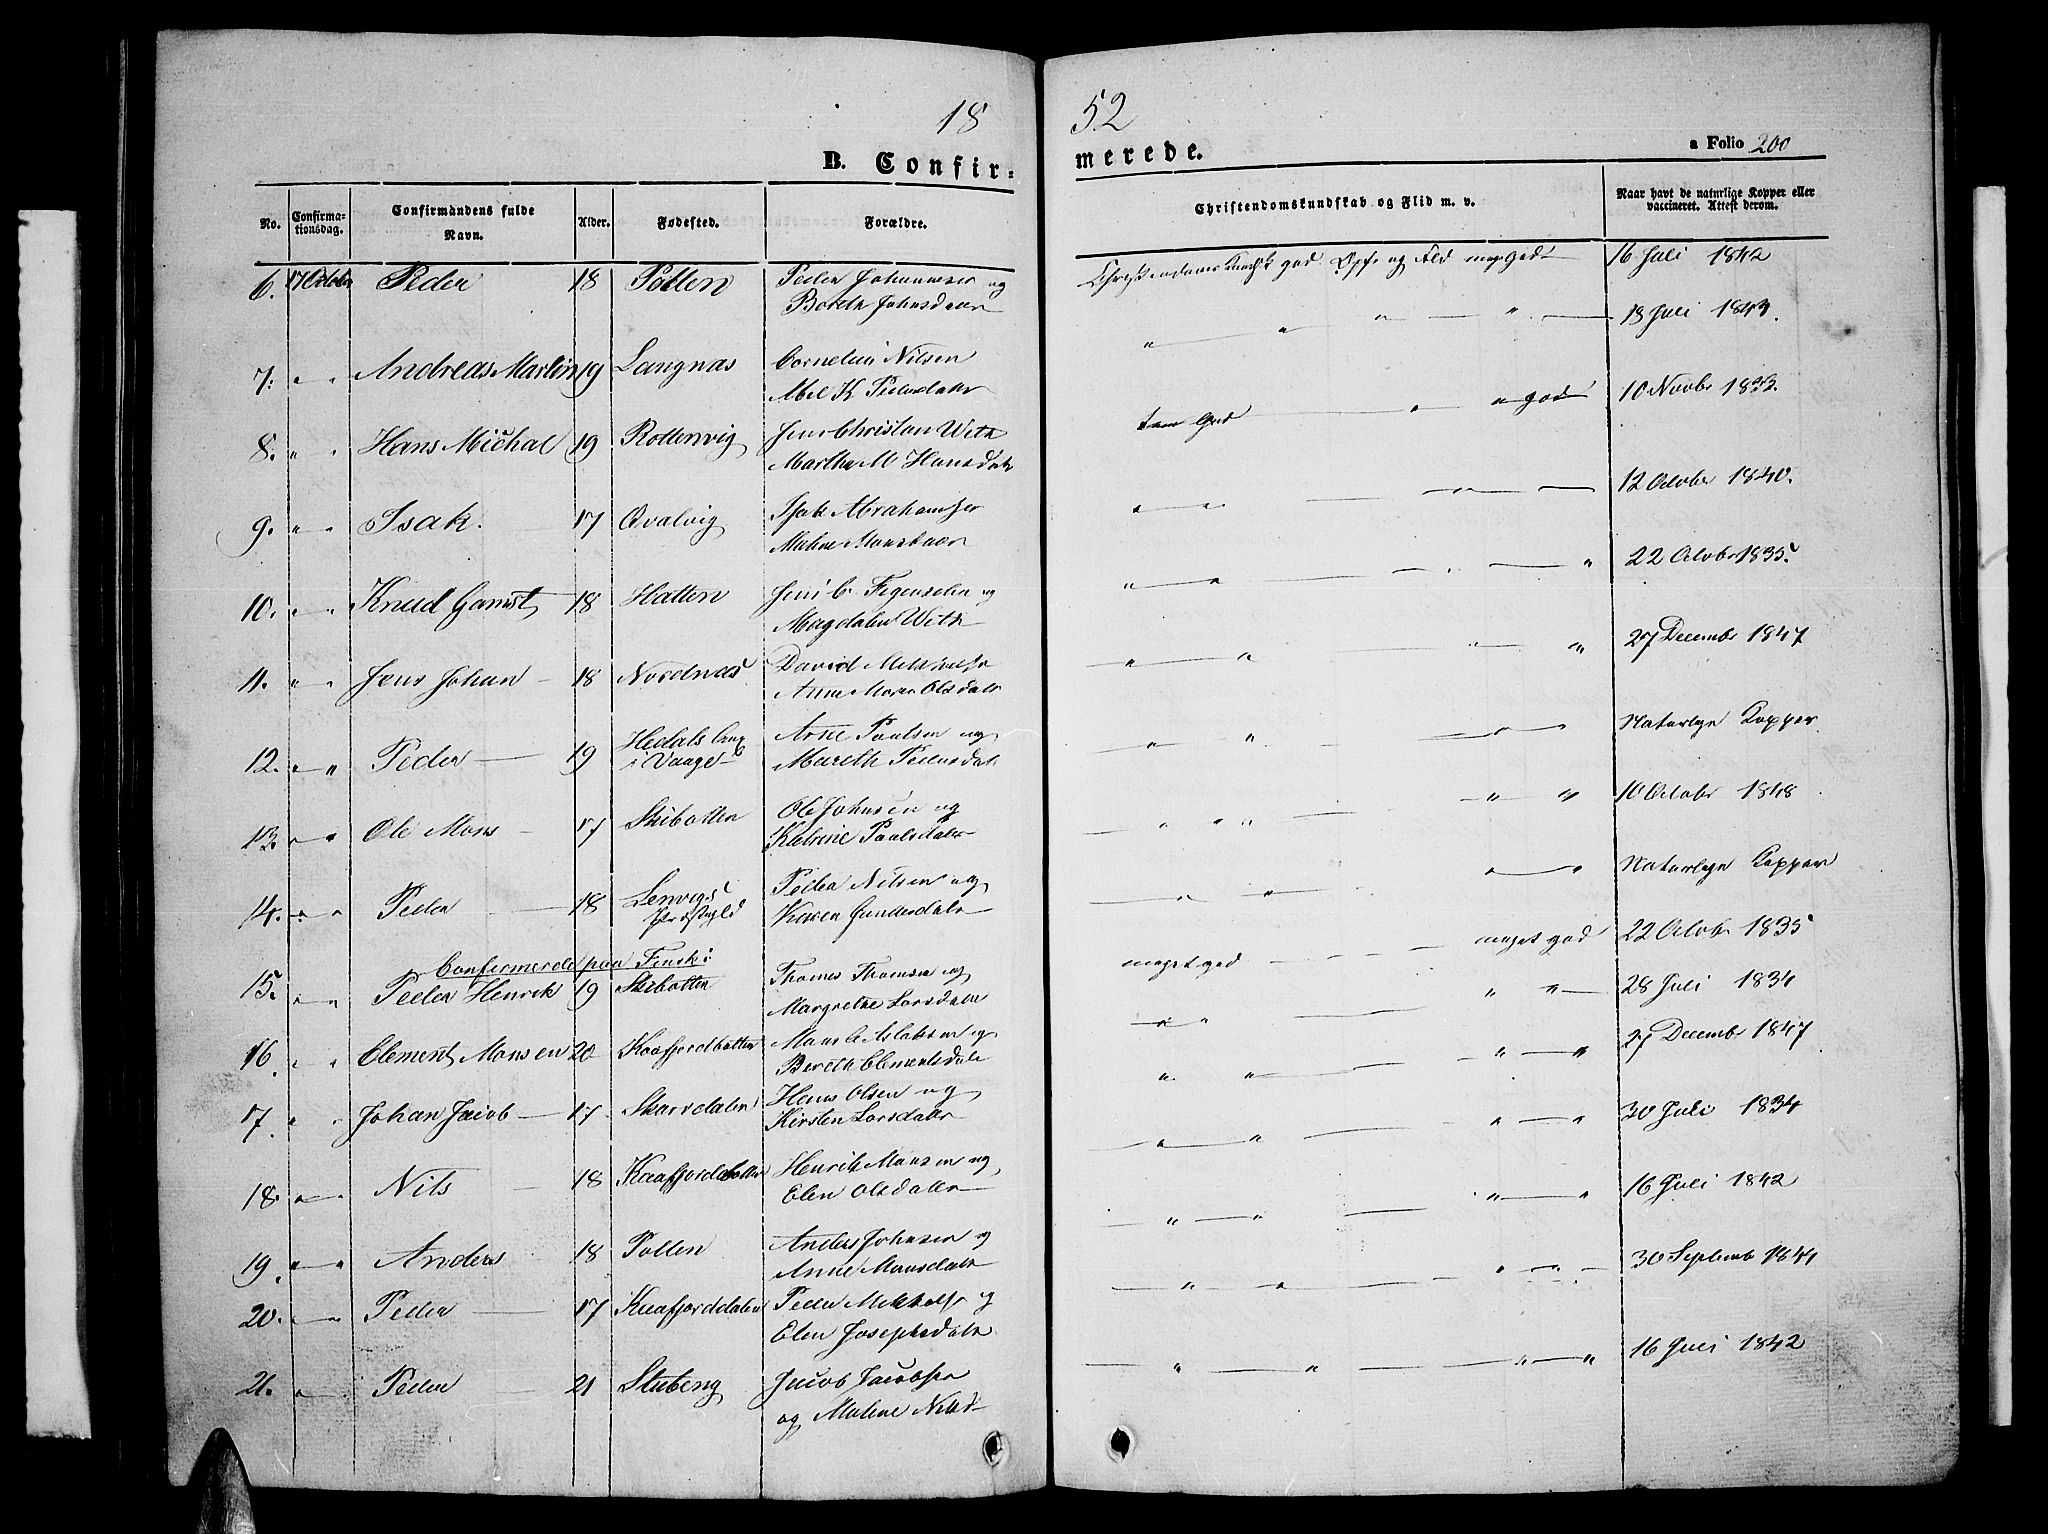 18 52
B. Confir= merede. a Folio 200
No. Confirma-tionsdag. Confirmandens fulde Navn. Alder. Fødested. Forældre. Christendomskundskab og Flid m. v. Naar havt de naturlige Kopper eller vaccineret. Attest derom.
6. 17 October Peder 18 Pollen Peder Johannesen og god og Flid meget godt 16 Juli 1842
Bereth Johnsdatter
7. " " Andreas Martin 19 Langnæs Cornelius Nilsen " " " " 18 Juli 1843.
Abel K Pedersdatter
8. " " Hans Michal 19 Rottenvig Jens Christian With tem God " " god 10 Novbr 1833.
Martha M Hansdatr
9. " " Isak. 17 Qvalvig Isak Abrahamsen " " " 12 Octobr 1840.
Malene Monsdatter
10. " " Knud Gamst 18 Hatten Jens C. og " " " " 22 Octobr 1835.
Magdalen With
11. " " Jens Johan 18 Nordnæs David Mikkelsen " " " " 27 Decembr 1847
Anne Olsdatr
12. " " Peder 19 Hedals Arne Paulsen og " " " " Naturlige Kopper
i Vaage Mareth Pedersdatr
13. " " Ole Mons 17 Skibotten Ole Johnsen og " " " " " 10 Octobr 1848
Katrine Paulsdatr
14. " " Peder 18 Lenvigs Peder Nilsen og " " " " Naturlige Kopper
Præstegjeld Karen Gundersdatr
Confirmerede paa Finsk:
15. " " Peder Henrik 19 Skibotten Thomas Thomsen og meget god meget god 22 Octobr 1835
Margrethe Larsdatr
16. " " Clement Monsen 20 Kaafjordbotten Mons Aslaksen og " " " " 28 Juli 1834
Bereth Clementsdatr
17. " " Johan Jacob 17. Skardalen Hans Olsen og " " " " 27 Decembr 1847
Kirsten Larsdatr
18. " " Nils 18 Kaafjordbotten Henrik Monsen og " " " " 30 Juli 1834
Elen Olsdatr
19. " " Anders 18 Pollen Anders Johnsen og " " " " 16 Juli 1842
Anne Monsdatr
20. " " Peder 17 Kaafjorddalen Peder Mikkelsen og " " " " 30 Septemb 1844
Elen Josephsdatr
21. " Peder 21 Stubeng Jacob Jacobsen " " " " 16 Juli 1842
og Malene Nilsd